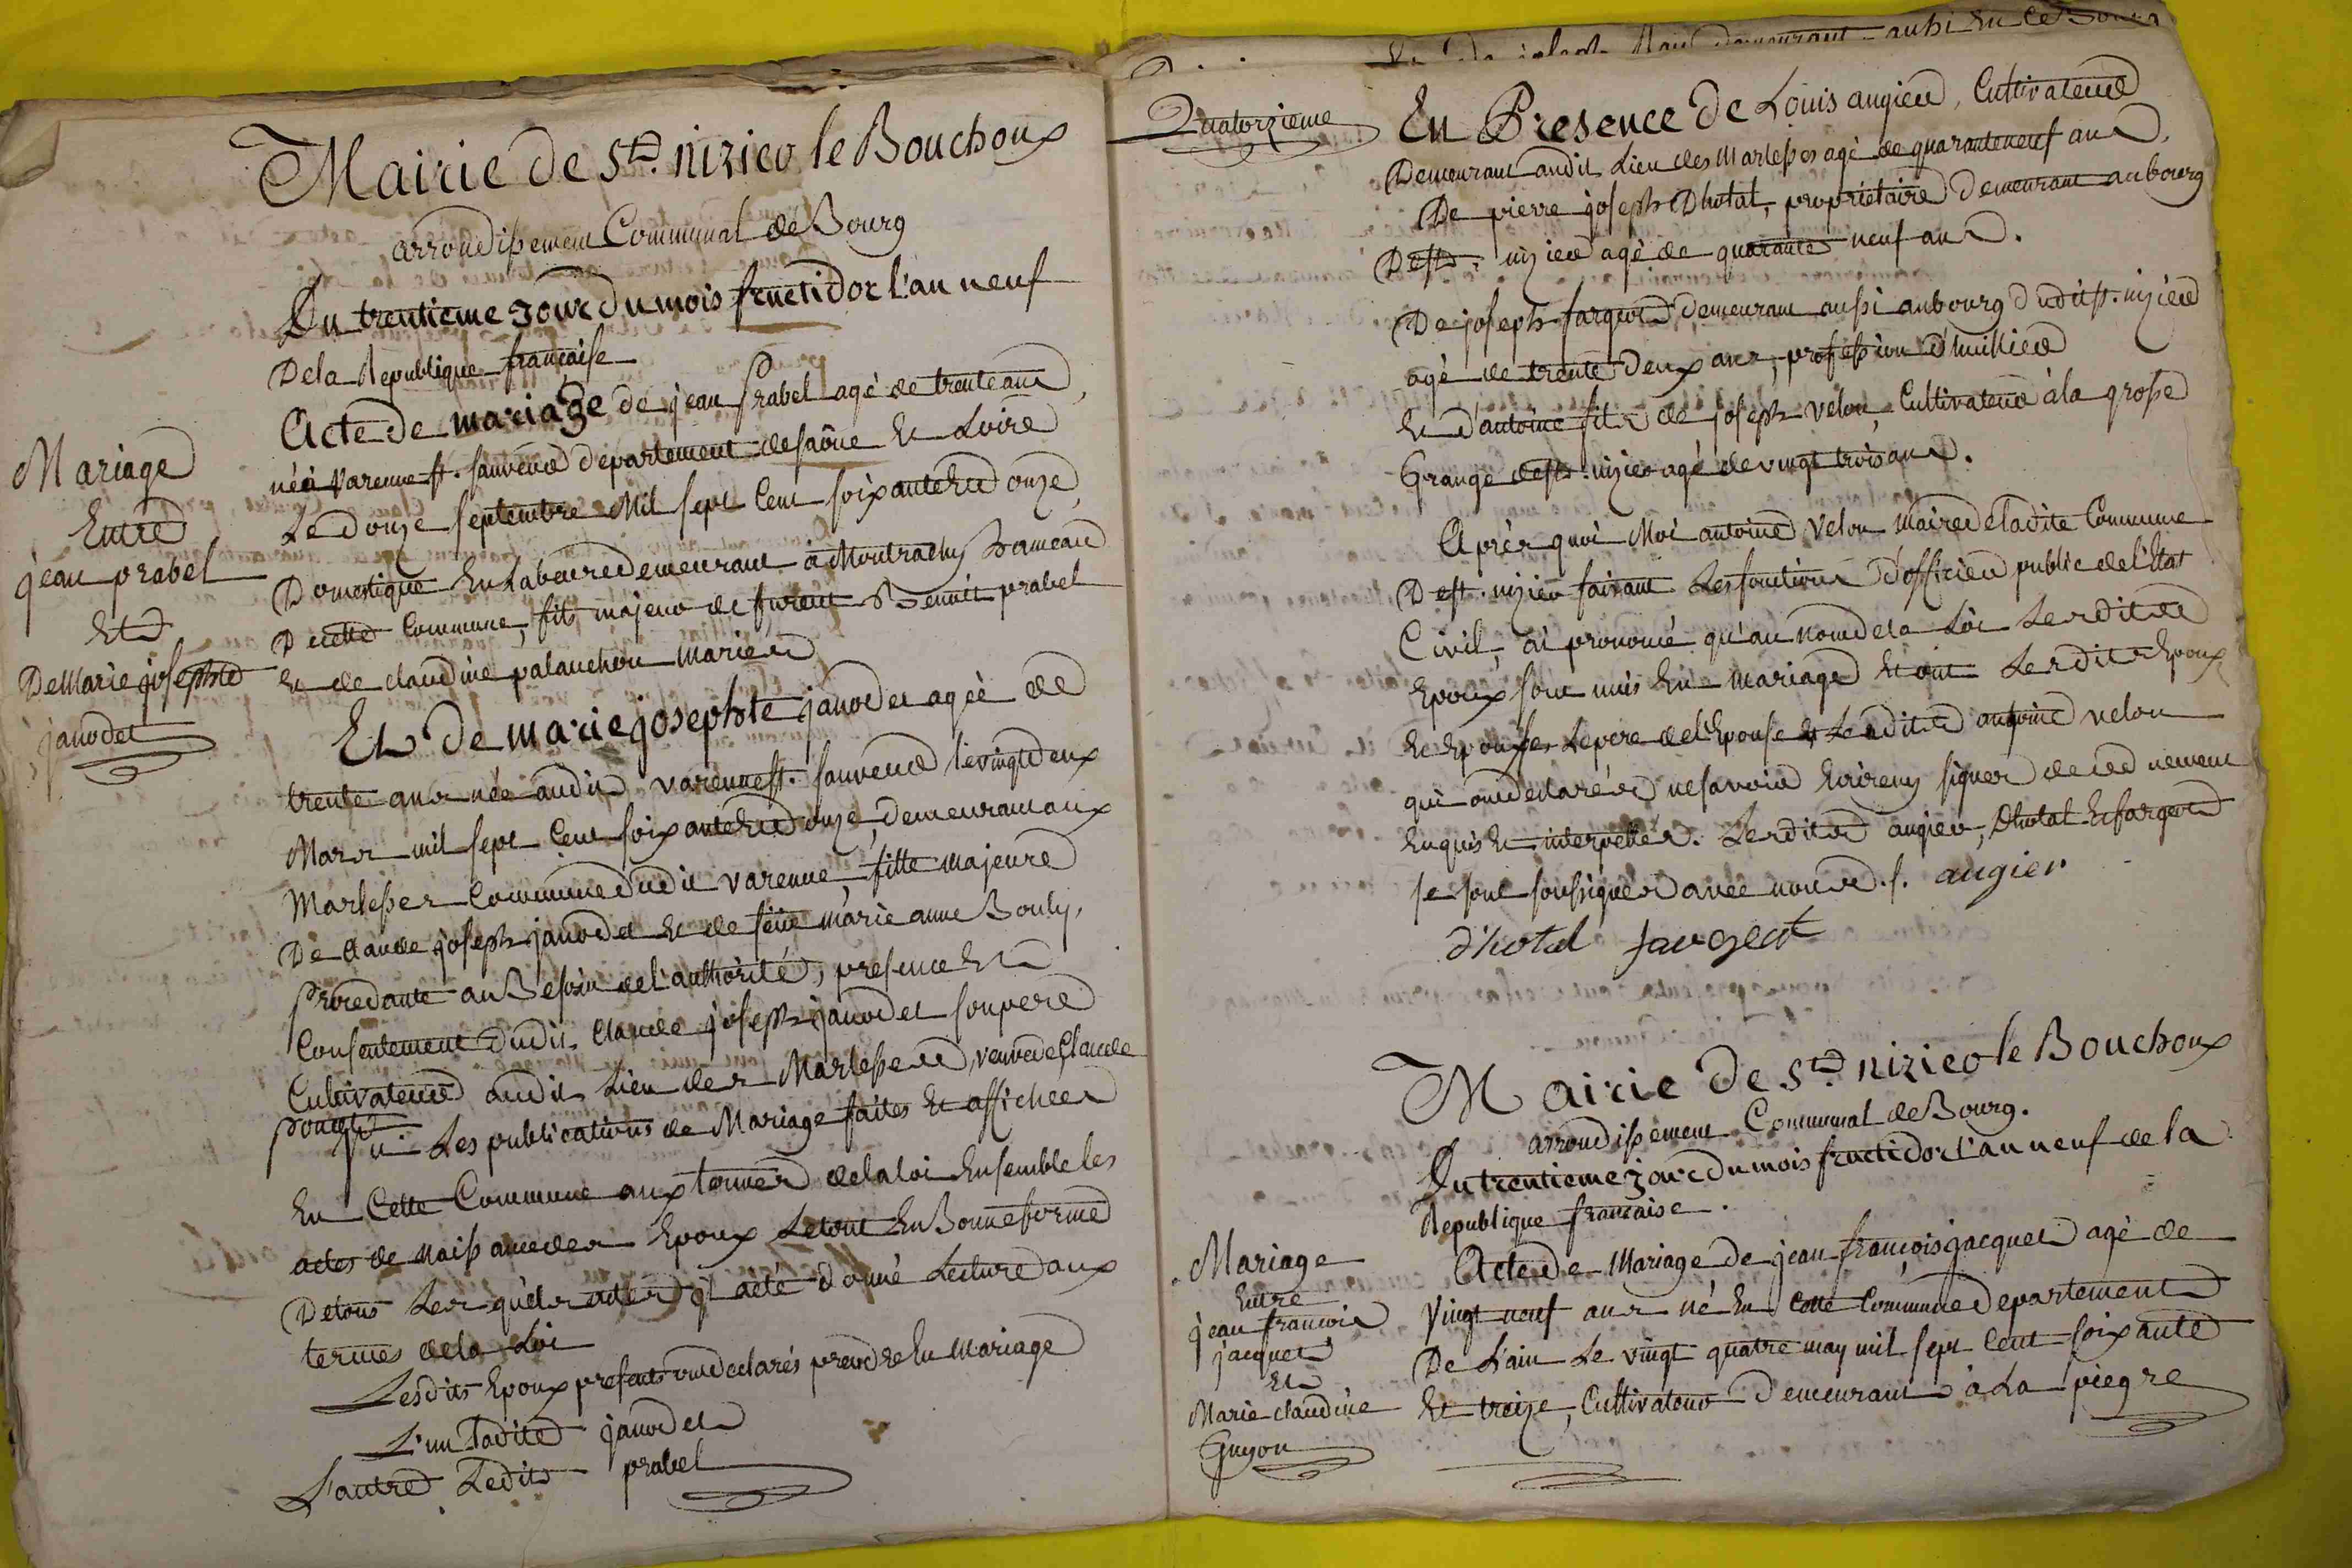 Mairie de St. nizier le Bouchoux
arrondissement Communal de Bourg
Du trentieme Jour du mois fructidor l'an neuf
De la Republique francaise
Mariage
Entre
jean prabel
Et
De Marie josephte
janodet
Acte de mariage de jean prabel agé de trente ans,
né à varenne st. sauveur departement de saône Et Loire
Le douze septembre Mil sept Cent soixante Et onze,
Domestique En Labeure demeurant à Montrachy hameau
De cette Commune, fils majeur de furent Benoit prabel
Et de claudine palanchon mariés
Et De marie josephte janodet agée de
trente ans née audit varenne st. sauveur le vingt deux
Mars mil sept Cent soixante Et onze, demeurant aux
Marlesses Commune dudit varenne, fille majeure
De claude joseph janodet Et de feüe marie anne Bouly,
Procedante au Besoin de l'authorité, presence Et
Consentement dudit Claude joseph janodet son pere
Cultivateur audit Lieu des Marlesses, veuve de Claude
poncet
Vu Les publications de Mariage faites Et affichées
En Cette Commune aux termes de la loi Ensemble les
actes de naissance des Epoux Le tout En Bonne forme
De tous Lesquels actes il a été donné Lecture aux
termes de la Loi
Lesdits Epoux presents ont declarés prendre En Mariage
L'un Ladite janodet
L'autre Ledit prabel
Quatorzieme
En Presence de Louis angier, Cultivateur
Demeurant audit Lieu des Marlesses agé de quarante neuf ans,
De pierre joseph Dhotal, proprietaire demeurant au bourg
De st. nizier agé de quarante neuf ans.
De joseph fargeot demeurant aussi au bourg dudit st. nizier
agé de trente deux ans, profession d'huillier
Et d'antoine fils de joseph velon, Cultivateur à la grosse
Grange de st. nizier agé de vingt trois ans.
Après quoi Moi antoine Velon maire de Ladite Commune
De st. nizier faisant Les fonctions d'officier public de l'Etat
Civil, ai prononcé qu'au nom de la Loi Lesdits
Epoux sont unis En mariage Et ont Lesdits Epoux
Et Epouse, Le pere de l'Epouse Et Ledit antoine velon
qui ont declarés ne savoir Ecrire ny signer de ce duement
Enquis Et interpellés. Lesdits angier, Dhotal Et fargeot
se sont soussignés avec nous. angier
d'hotal fargeot
Mairie De St. nizier le Bouchoux
arrondissement Communal de Bourg.
Du trentieme jour du mois fructidor l'an neuf de la
Republique francaise.
Mariage
Entre
jean francois
jacquet
Et
Marie claudine
Guyon
Acte de Mariage de jean françois jacquet agé de
Vingt neuf ans né En Cette Commune departement
De L'ain Le vingt quatre may mil sept Cent soixante
Et treize, Cultivateur demeurant à La piegre